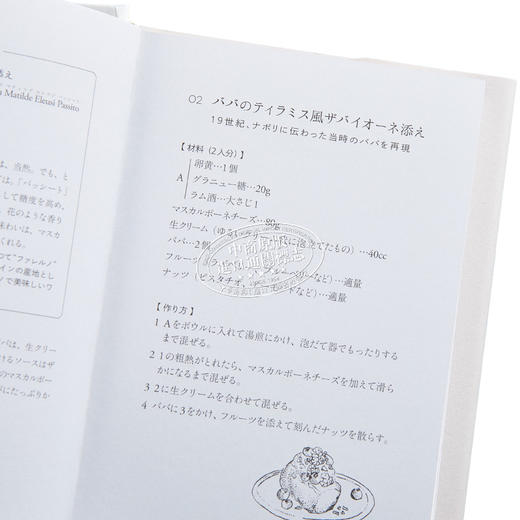 添え
Matilde Eleusi Passito
は、当然。でも、と
では。「パッシート」
として糖度を高め、
花のような香り
味わいは、マスカ
つて“ファレルノ
インの産地とし
ノで美味しいワ
バは、生クリー
けるソースはザ
のマスカルポー
バにたっぷりか
02 ババのティラミス風ザバイオーネ添え
19世紀、ナポリに伝わった当時のババを再現
【材料(2人分)】
A
卵黄…1個
グラニュー糖…20g
ラム酒…大さじ1
マスカルポーネチーズ…80g
生クリーム(ゆる に泡立てたもの)…40cc
ババ…2個
フルーツ(ラ ベリーなど)…適量
ナッツ(ピスタチオ、 ドなど)…適量
【作り方】
1 Aをボウルに入れて湯煎にかけ、泡だて器でもったりする
まで混ぜる。
2 1の粗熱がとれたら、マスカルポーネチーズを加えて滑ら
かになるまで混ぜる。
3 2に生クリームを合わせて混ぜる。
4 ババに3をかけ、フルーツを添えて刻んだナッツを散らす。